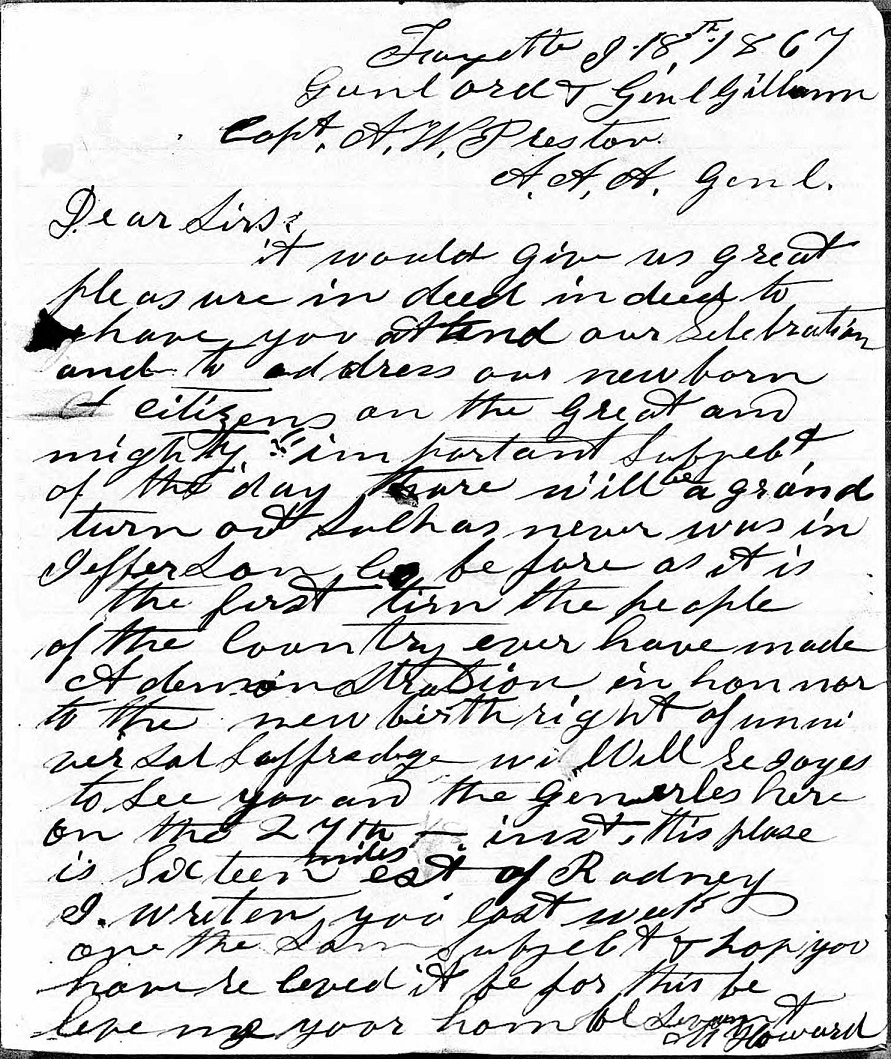 Fayette J. 18th, 1867
Genl ord & Genl Gillamm
Capt, A. W. Preston
A. A, A, Genl.
Dear Sirs;
it would give us great
pleasure in deed in deed to
have you attend our Selebration
and to address our new born
citizens on the Great and
mighty important Subject
of the day thare will be a grand
turn out Such as never was in
Jefferson Co be fore as it is
the first tirn the people
of the Country ever have made
A demonstration in honnor
to the new birth right of unni
versal Suffradge wi Will Rejoyes
to See you and the Generles here
on the 27th inst, this plase
is Sixteen miles est of Rodney
I. writen you last week
one the Sam subject & hop you
have Re seved it be for this be
leve me your hombl Servant
Howard